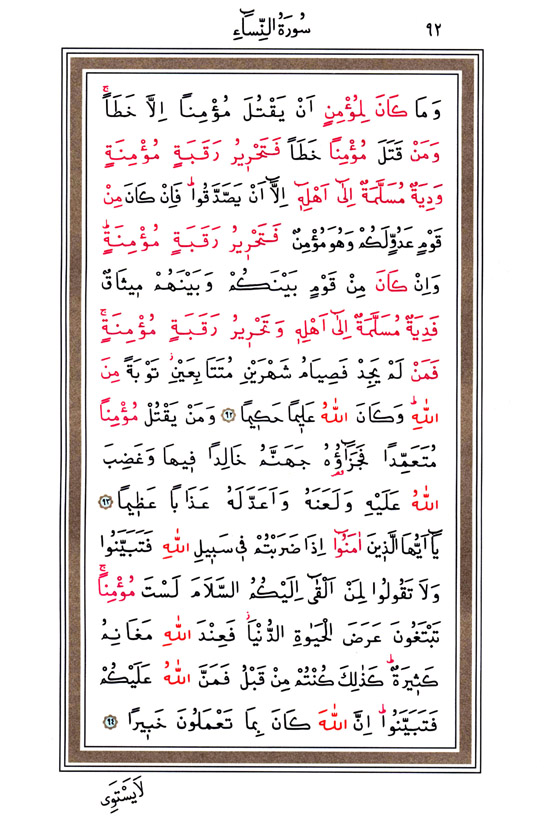 سُورَةُ النِّسَاءِ ٩٢
وَمَا كَانَ لِمُؤْمِنٍ اَنْ يَقْتُلَ مُؤْمِنًا اِلَّا خَطَأًۚ
وَمَنْ قَتَلَ مُؤْمِنًا خَطَأً فَتَحْرِيرُ رَقَبَةٍ مُؤْمِنَةٍ
وَدِيَةٌ مُسَلَّمَةٌ اِلٰٓى اَهْلِهٖٓ اِلَّٓا اَنْ يَصَّدَّقُواۜ فَاِنْ كَانَ مِنْ
قَوْمٍ عَدُوٍّ لَكُمْ وَهُوَ مُؤْمِنٌ فَتَحْرِيرُ رَقَبَةٍ مُؤْمِنَةٍۜ
وَاِنْ كَانَ مِنْ قَوْمٍ بَيْنَكُمْ وَبَيْنَهُمْ مٖيثَاقٌ
فَدِيَةٌ مُسَلَّمَةٌ اِلٰٓى اَهْلِهٖ وَتَحْرِيرُ رَقَبَةٍ مُؤْمِنَةٍۚ
فَمَنْ لَمْ يَجِدْ فَصِيَامُ شَهْرَيْنِ مُتَتَابِعَيْنِۘ تَوْبَةً مِنَ
اللّٰهِۜ وَكَانَ اللّٰهُ عَلٖيمًا حَكٖيمًا ٩٢ وَمَنْ يَقْتُلْ مُؤْمِنًا
مُتَعَمِّدًا فَجَزَٓاؤُ۬هُ جَهَنَّمُ خَالِدًا فٖيهَا وَغَضِبَ
اللّٰهُ عَلَيْهِ وَلَعَنَهُ وَاَعَدَّ لَهُ عَذَابًا عَظٖيمًا ٩٣
يَٓا اَيُّهَا الَّذٖينَ اٰمَنُٓوا اِذَا ضَرَبْتُمْ فٖي سَبٖيلِ اللّٰهِ فَتَبَيَّنُوا
وَلَا تَقُولُوا لِمَنْ اَلْقٰٓى اِلَيْكُمُ السَّلَامَ لَسْتَ مُؤْمِنًاۚ
تَبْتَغُونَ عَرَضَ الْحَيٰوةِ الدُّنْيَاۘ فَعِنْدَ اللّٰهِ مَغَانِمُ
كَثٖيرَةٌۜ كَذٰلِكَ كُنْتُمْ مِنْ قَبْلُ فَمَنَّ اللّٰهُ عَلَيْكُمْ
فَتَبَيَّنُواۜ اِنَّ اللّٰهَ كَانَ بِمَا تَعْمَلُونَ خَبٖيرًا ٩٤
لَا يَسْتَوِى